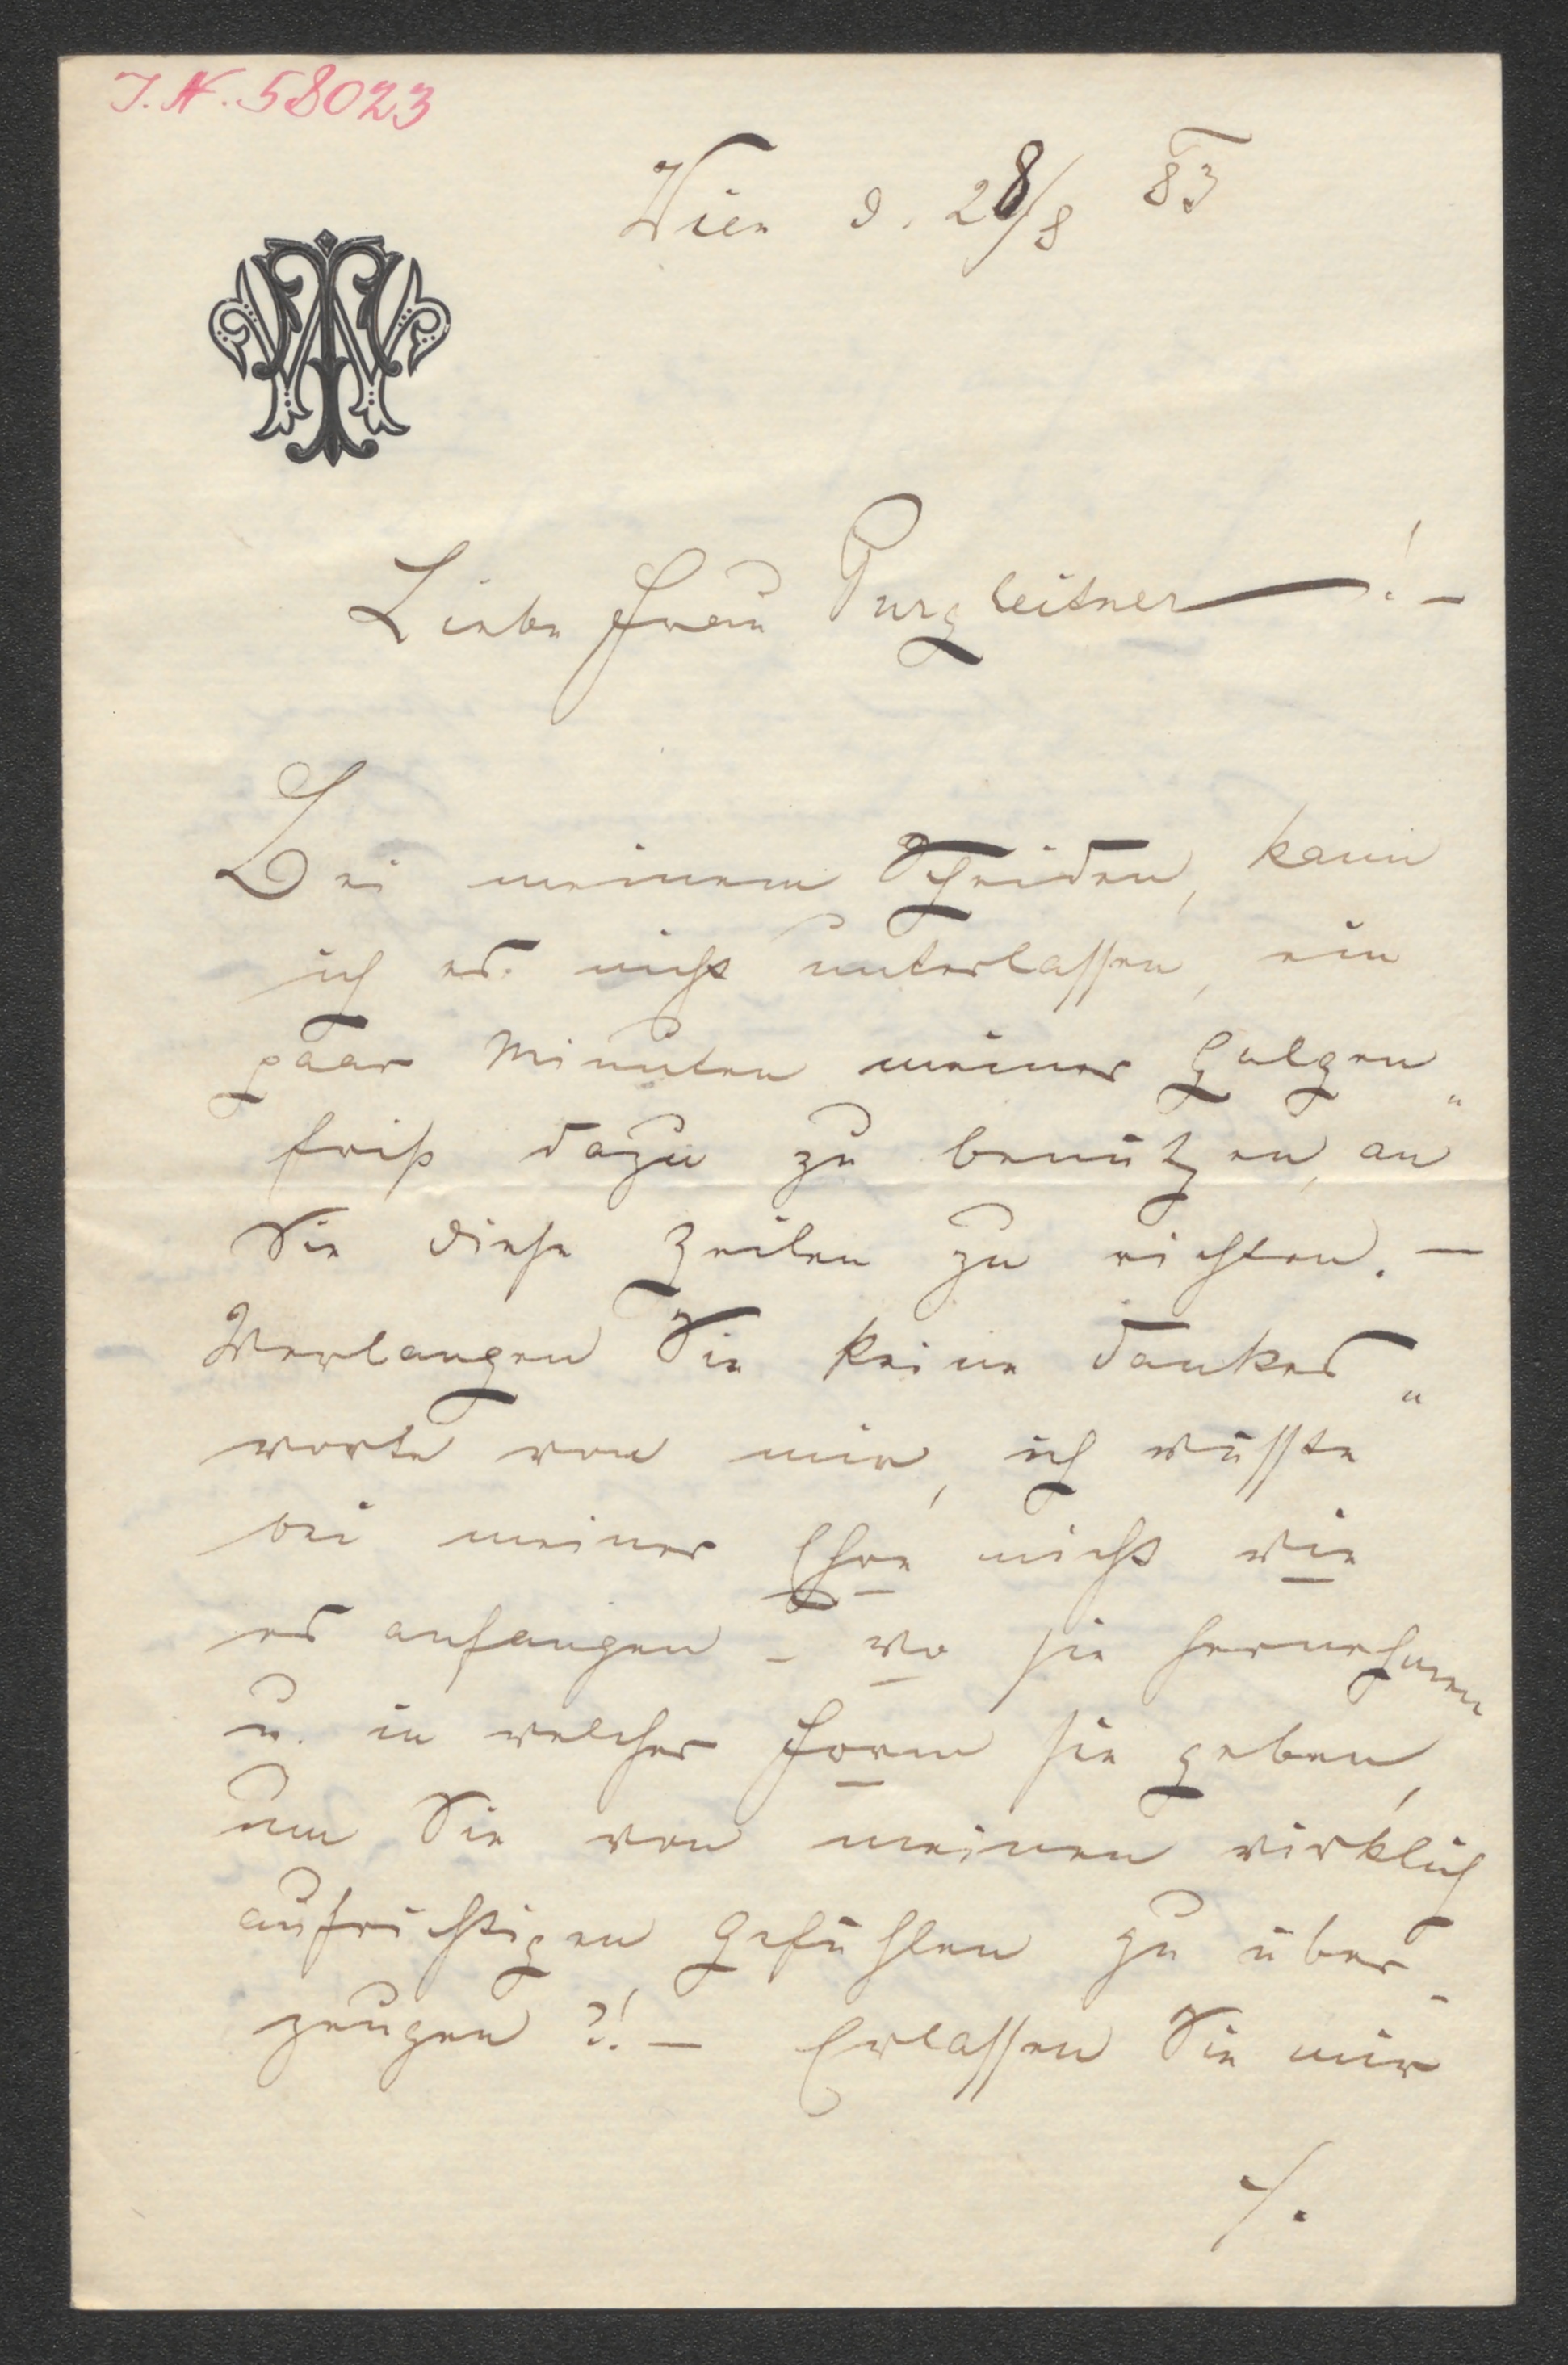 J. N. 58023
Wien d. 28/8 83
Liebe Frau Purgleitner! –
Bei meinem Scheiden, kann
ich es nicht unterlassen, ein
paar Minuten meiner Galgen„
frist dazu zu benützen, an
Sie diese Zeilen zu richten. –
Verlangen Sie keine Dankes„
worte von mir, ich wüsste
bei meiner Ehre nicht wie
es anfangen – wo sie hernehmen
u. in welcher Form sie geben,
um Sie von meinen wirklich
aufrichtigen Gefühlen zu über-
zeugen?! – Erlassen Sie mir
/.